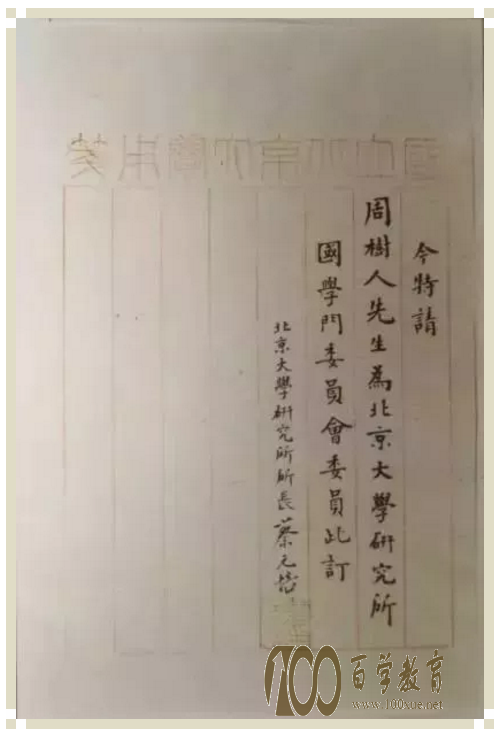 國立北京大學用箋
今特請
周樹人先生為北京大學研究所
國學門委員會委員此訂
北京大學研究所所長蔡元培
100百学教育
www.100xue.net